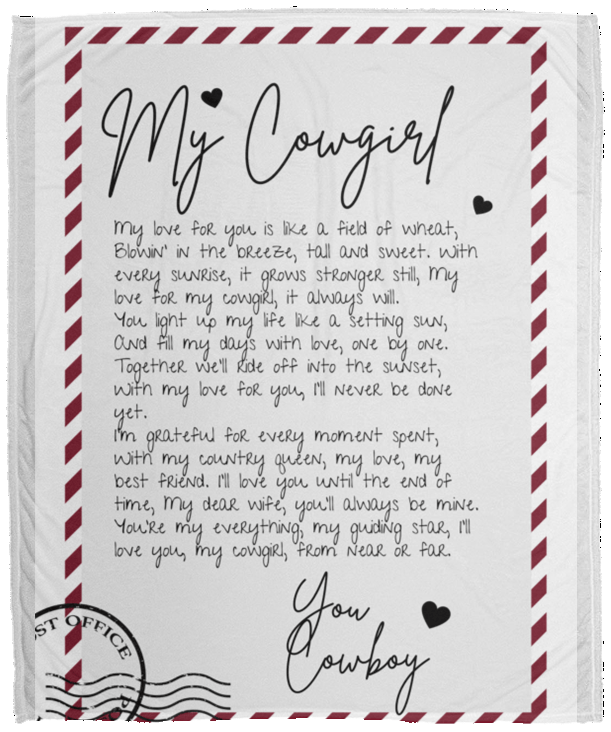 My Cowgirl
My love for you is like a field of wheat,
Blowin' in the breeze, tall and sweet. With
every sunrise, it grows stronger still, My
love for my cowgirl, it always will.
You light up my life like a setting sun,
And fill my days with love, one by one.
Together we'll ride off into the sunset,
With my love for you, I'll never be done
yet.
I'm grateful for every moment spent,
With my country queen, my love, my
best friend. I'll love you until the end of
time, My dear wife, you'll always be mine.
You're my everything, my guiding star, I'll
love you, my cowgirl, from near or far.
You
Cowboy
ST OFFICE